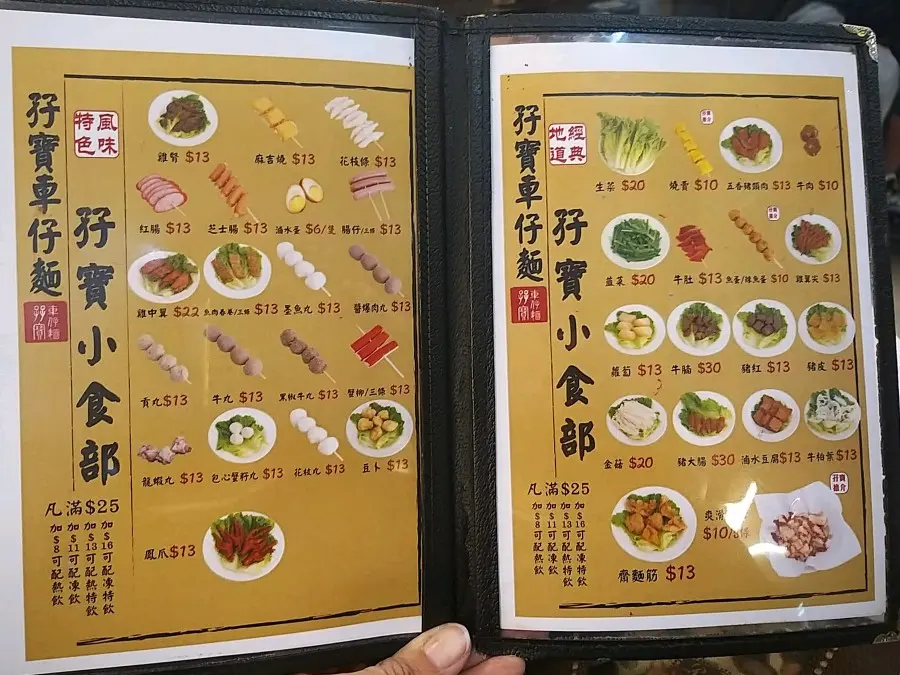 孖寶車仔麵
車仔麵
孖寶
風味
特色
孖寶小食部
雞腎 $13
麻吉燒 $13
花枝條 $13
紅腸 $13
芝士腸 $13
滷水蛋 $6/隻
腸仔/三條 $13
雞中翼 $22
魚肉春卷/三條 $13
墨魚丸 $13
醬爆肉丸 $13
貢丸 $13
牛丸 $13
黑椒牛丸 $13
蟹柳/三條 $13
龍蝦丸 $13
包心蟹籽丸 $13
花枝丸 $13
豆卜 $13
鳳爪 $13
凡滿$25
加$16可配凍特飲
加$13可配熱特飲
加$11可配凍飲
加$8可配熱飲
孖寶車仔麵
車仔麵
孖寶
經典
地道
孖寶小食部
生菜 $20
燒賣 $10
五香豬頸肉 $13
牛肉 $10
韮菜 $20
牛肚 $13
魚蛋/辣魚蛋 $10
雞翼尖 $13
蘿蔔 $13
牛腩 $30
豬紅 $13
豬皮 $13
金菇 $20
豬大腸 $30
滷水豆腐 $13
牛柏葉 $13
齋麵筋 $13
爽滑
$10/
凡滿$25
加$16可配凍特飲
加$13可配熱特飲
加$11可配凍飲
加$8可配熱飲